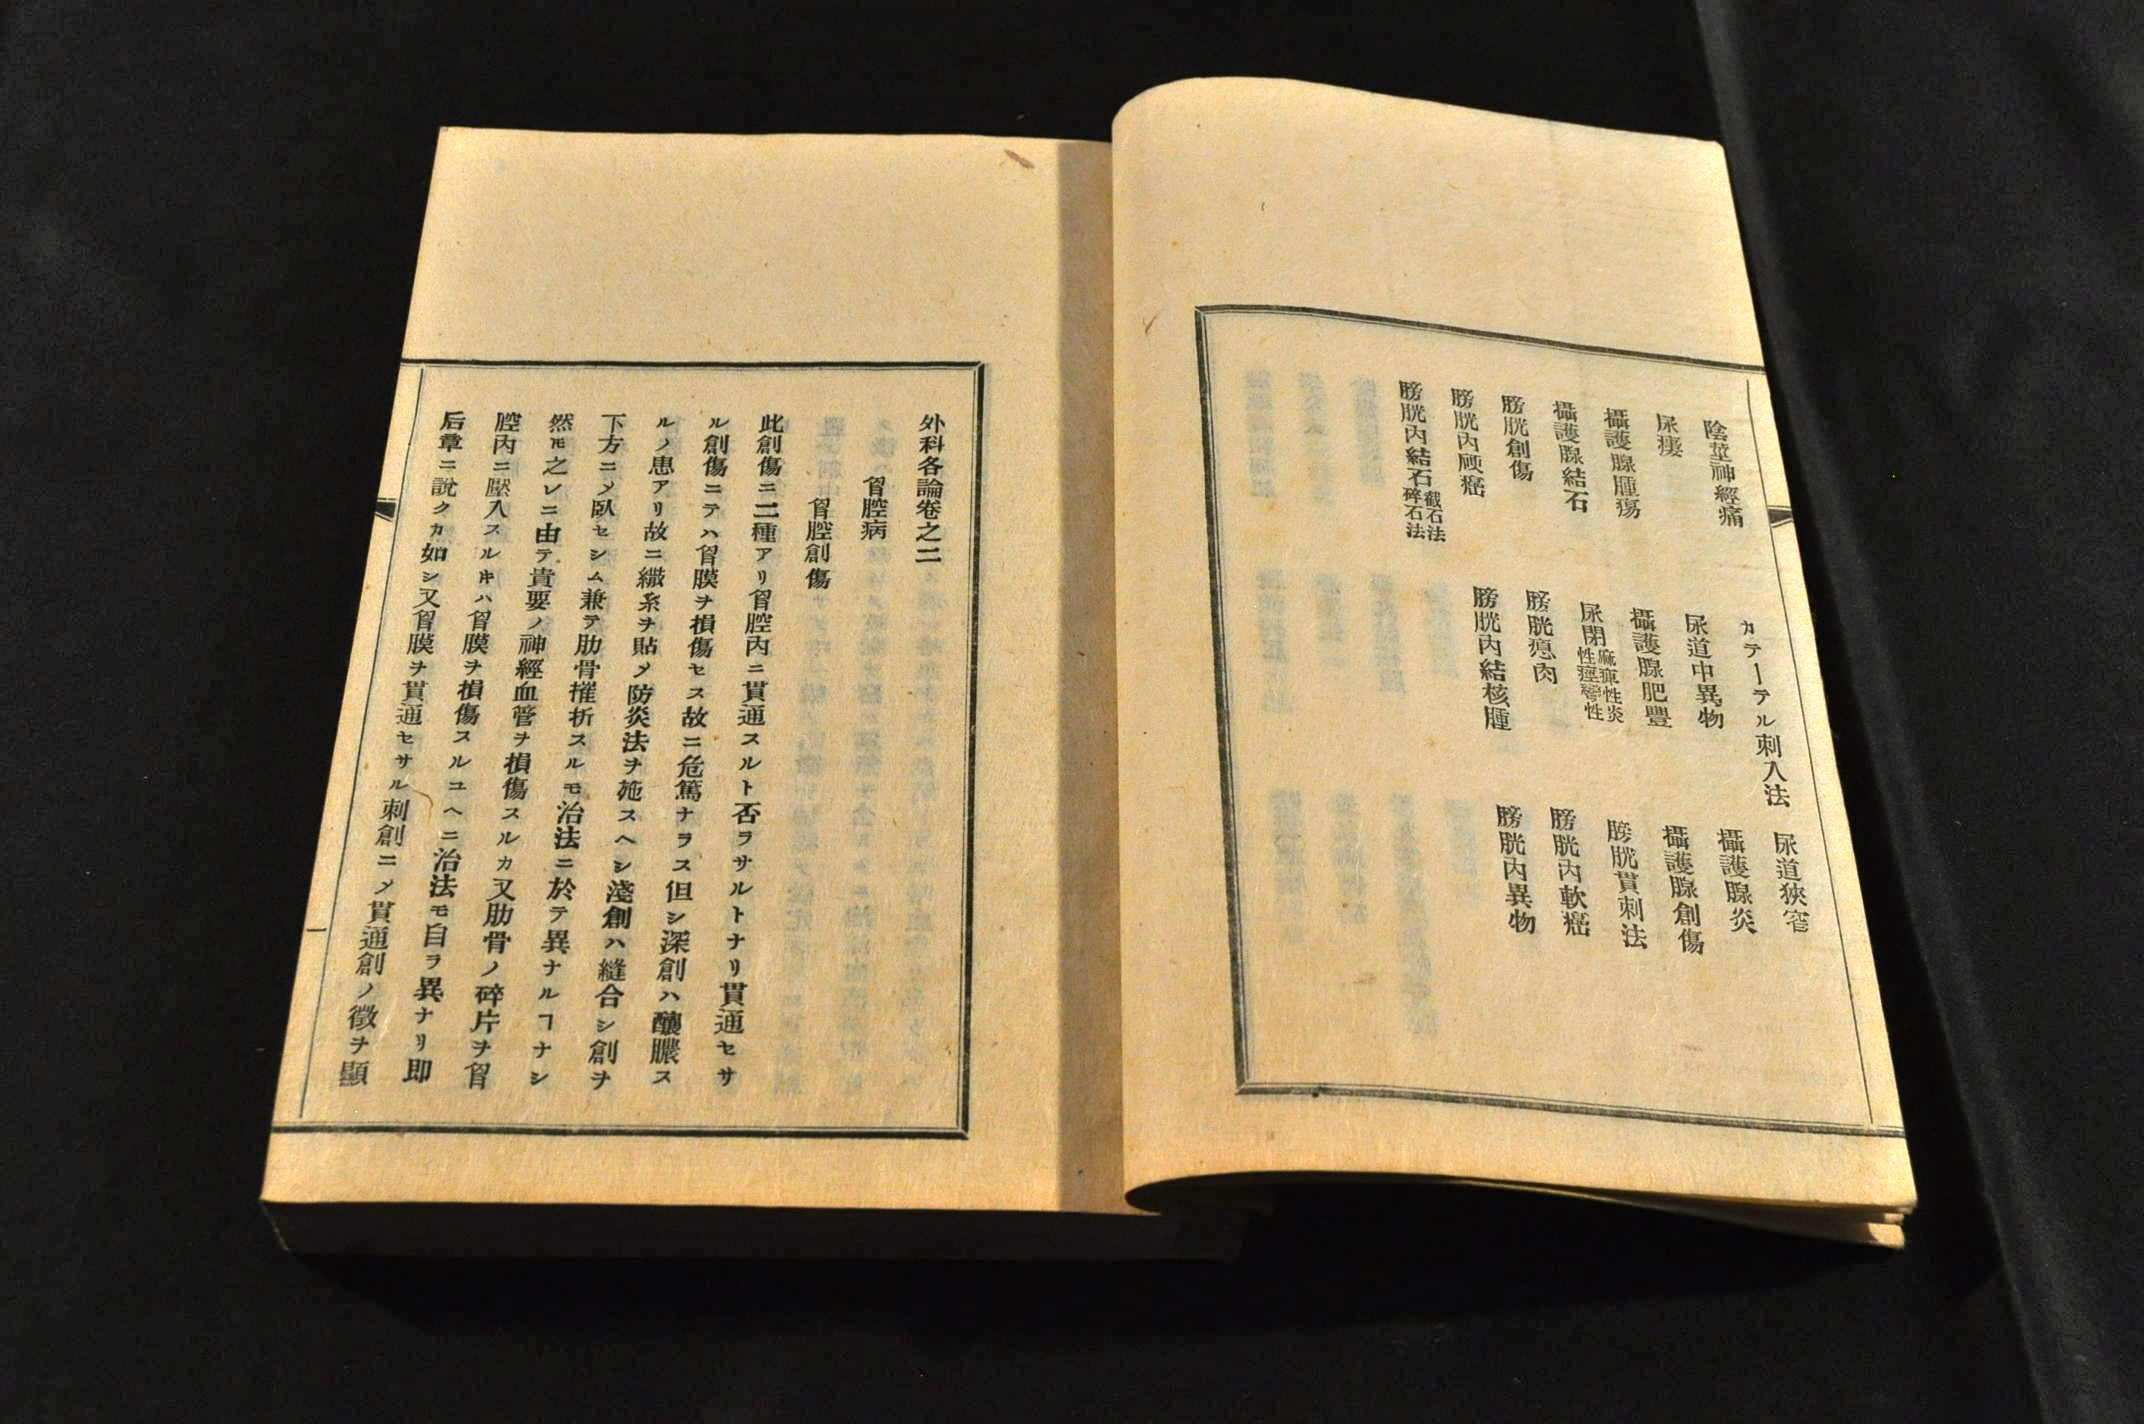 陰莖神經痛　カテーテル刺入法　尿道狹窄
尿瘻　尿道中異物　攝護腺炎
攝護腺腫瘍　攝護腺肥豐　攝護腺創傷
攝護腺結石　尿閉麻痺性炎性痙攣性　膀胱貫刺法
膀胱創傷　膀胱瘜肉　膀胱內軟癌
膀胱內硬癌　膀胱內結核腫　膀胱內異物
膀胱內結石截石法碎石法
外科各論卷之二
胷腔病
胷腔創傷
此創傷ニ二種アリ胷腔內ニ貫通スルト否ラサルトナリ貫通セサ
ル創傷ニテハ胷膜ヲ損傷セス故ニ危篤ナラス但シ深創ハ釀膿ス
ルノ患アリ故ニ繃糸ヲ貼〆防炎法ヲ施スヘシ淺創ハ縫合シ創ヲ
下方ニ〆臥セシム兼テ肋骨摧折スルモ治法ニ於テ異ナルヿナシ
然𪜈之レニ由テ貴要ノ神經血管ヲ損傷スルカ又肋骨ノ碎片ヲ胷
腔內ニ壓入スルキハ胷膜ヲ損傷スルユヘニ治法モ自ラ異ナリ即
后章ニ說クカ如シ又胷膜ヲ貫通セサル刺創ニ〆貫通創ノ徵ヲ顯
一